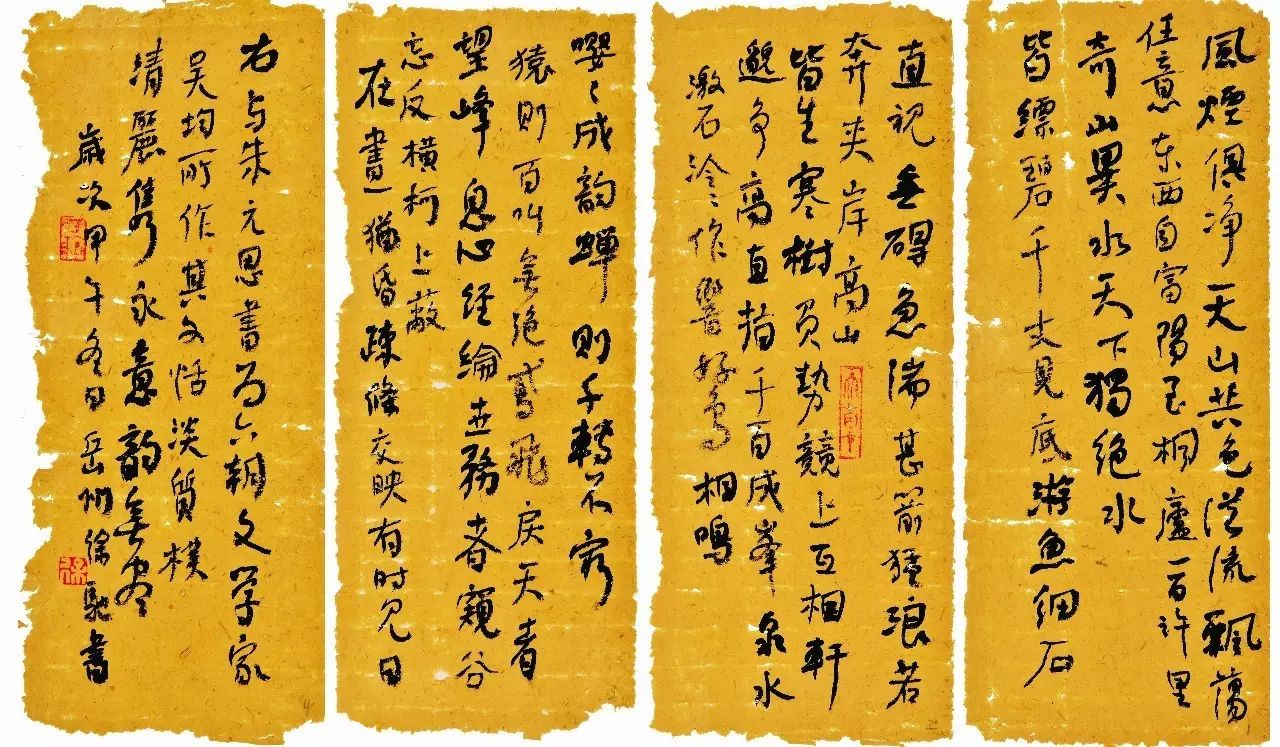 風煙俱净天山共色從流飄蕩
任意东西自富陽至桐廬一百許里
奇山異水天下獨绝水
皆縹碧千丈見底游魚细石
直視無碍急湍甚箭猛浪若
奔夹岸高山
皆生寒樹負势競上互相軒
邈争高直指千百成峯泉水
激石泠〻作響好鸟相鳴
嚶〻成韵蟬則千轉不窮
猿則百叫無绝鸢飛戾天者
望峰息心經綸世務者窺谷
忘反横柯上蔽
在晝猶昏疎條交映有时見日
右与朱元思書为六朝文学家
吴均所作其文恬淡質樸
清麗隽永意韵無盡
歲次甲午冬日岳州徐馳書